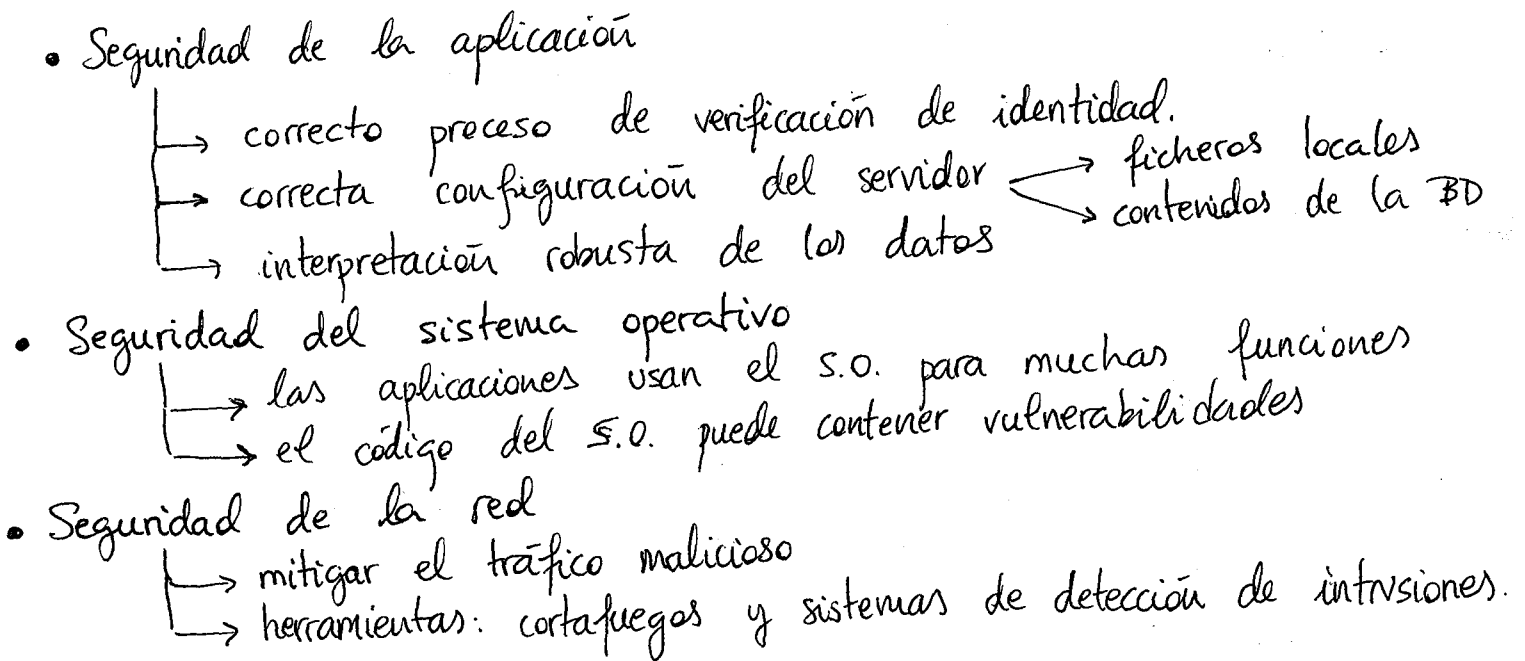 • Seguridad de la aplicación
→ correcto proceso de verificación de identidad.
→ correcta configuración del servidor → ficheros locales
→ contenidos de la BD
→ interpretación robusta de los datos
• Seguridad del sistema operativo
→ las aplicaciones usan el S.O. para muchas funciones
→ el código del S.O. puede contener vulnerabilidades
• Seguridad de la red
→ mitigar el tráfico malicioso
→ herramientas: cortafuegos y sistemas de detección de intrusiones.